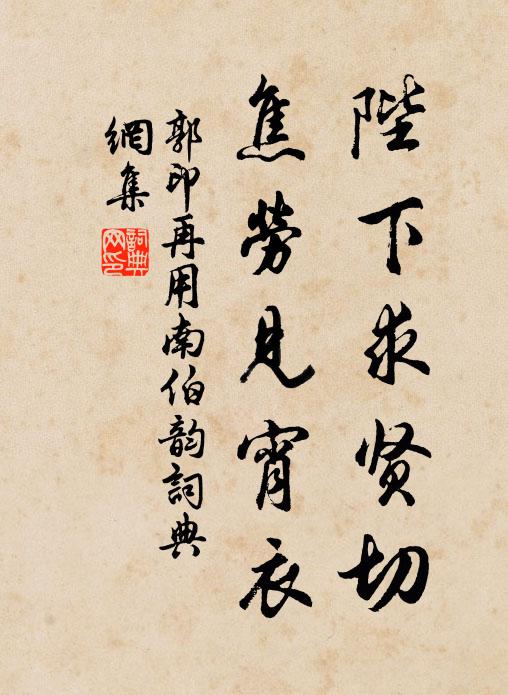 陛下求贤切
焦勞見宵衣
郭印再用南伯韵詞典
網集
詞典
网印